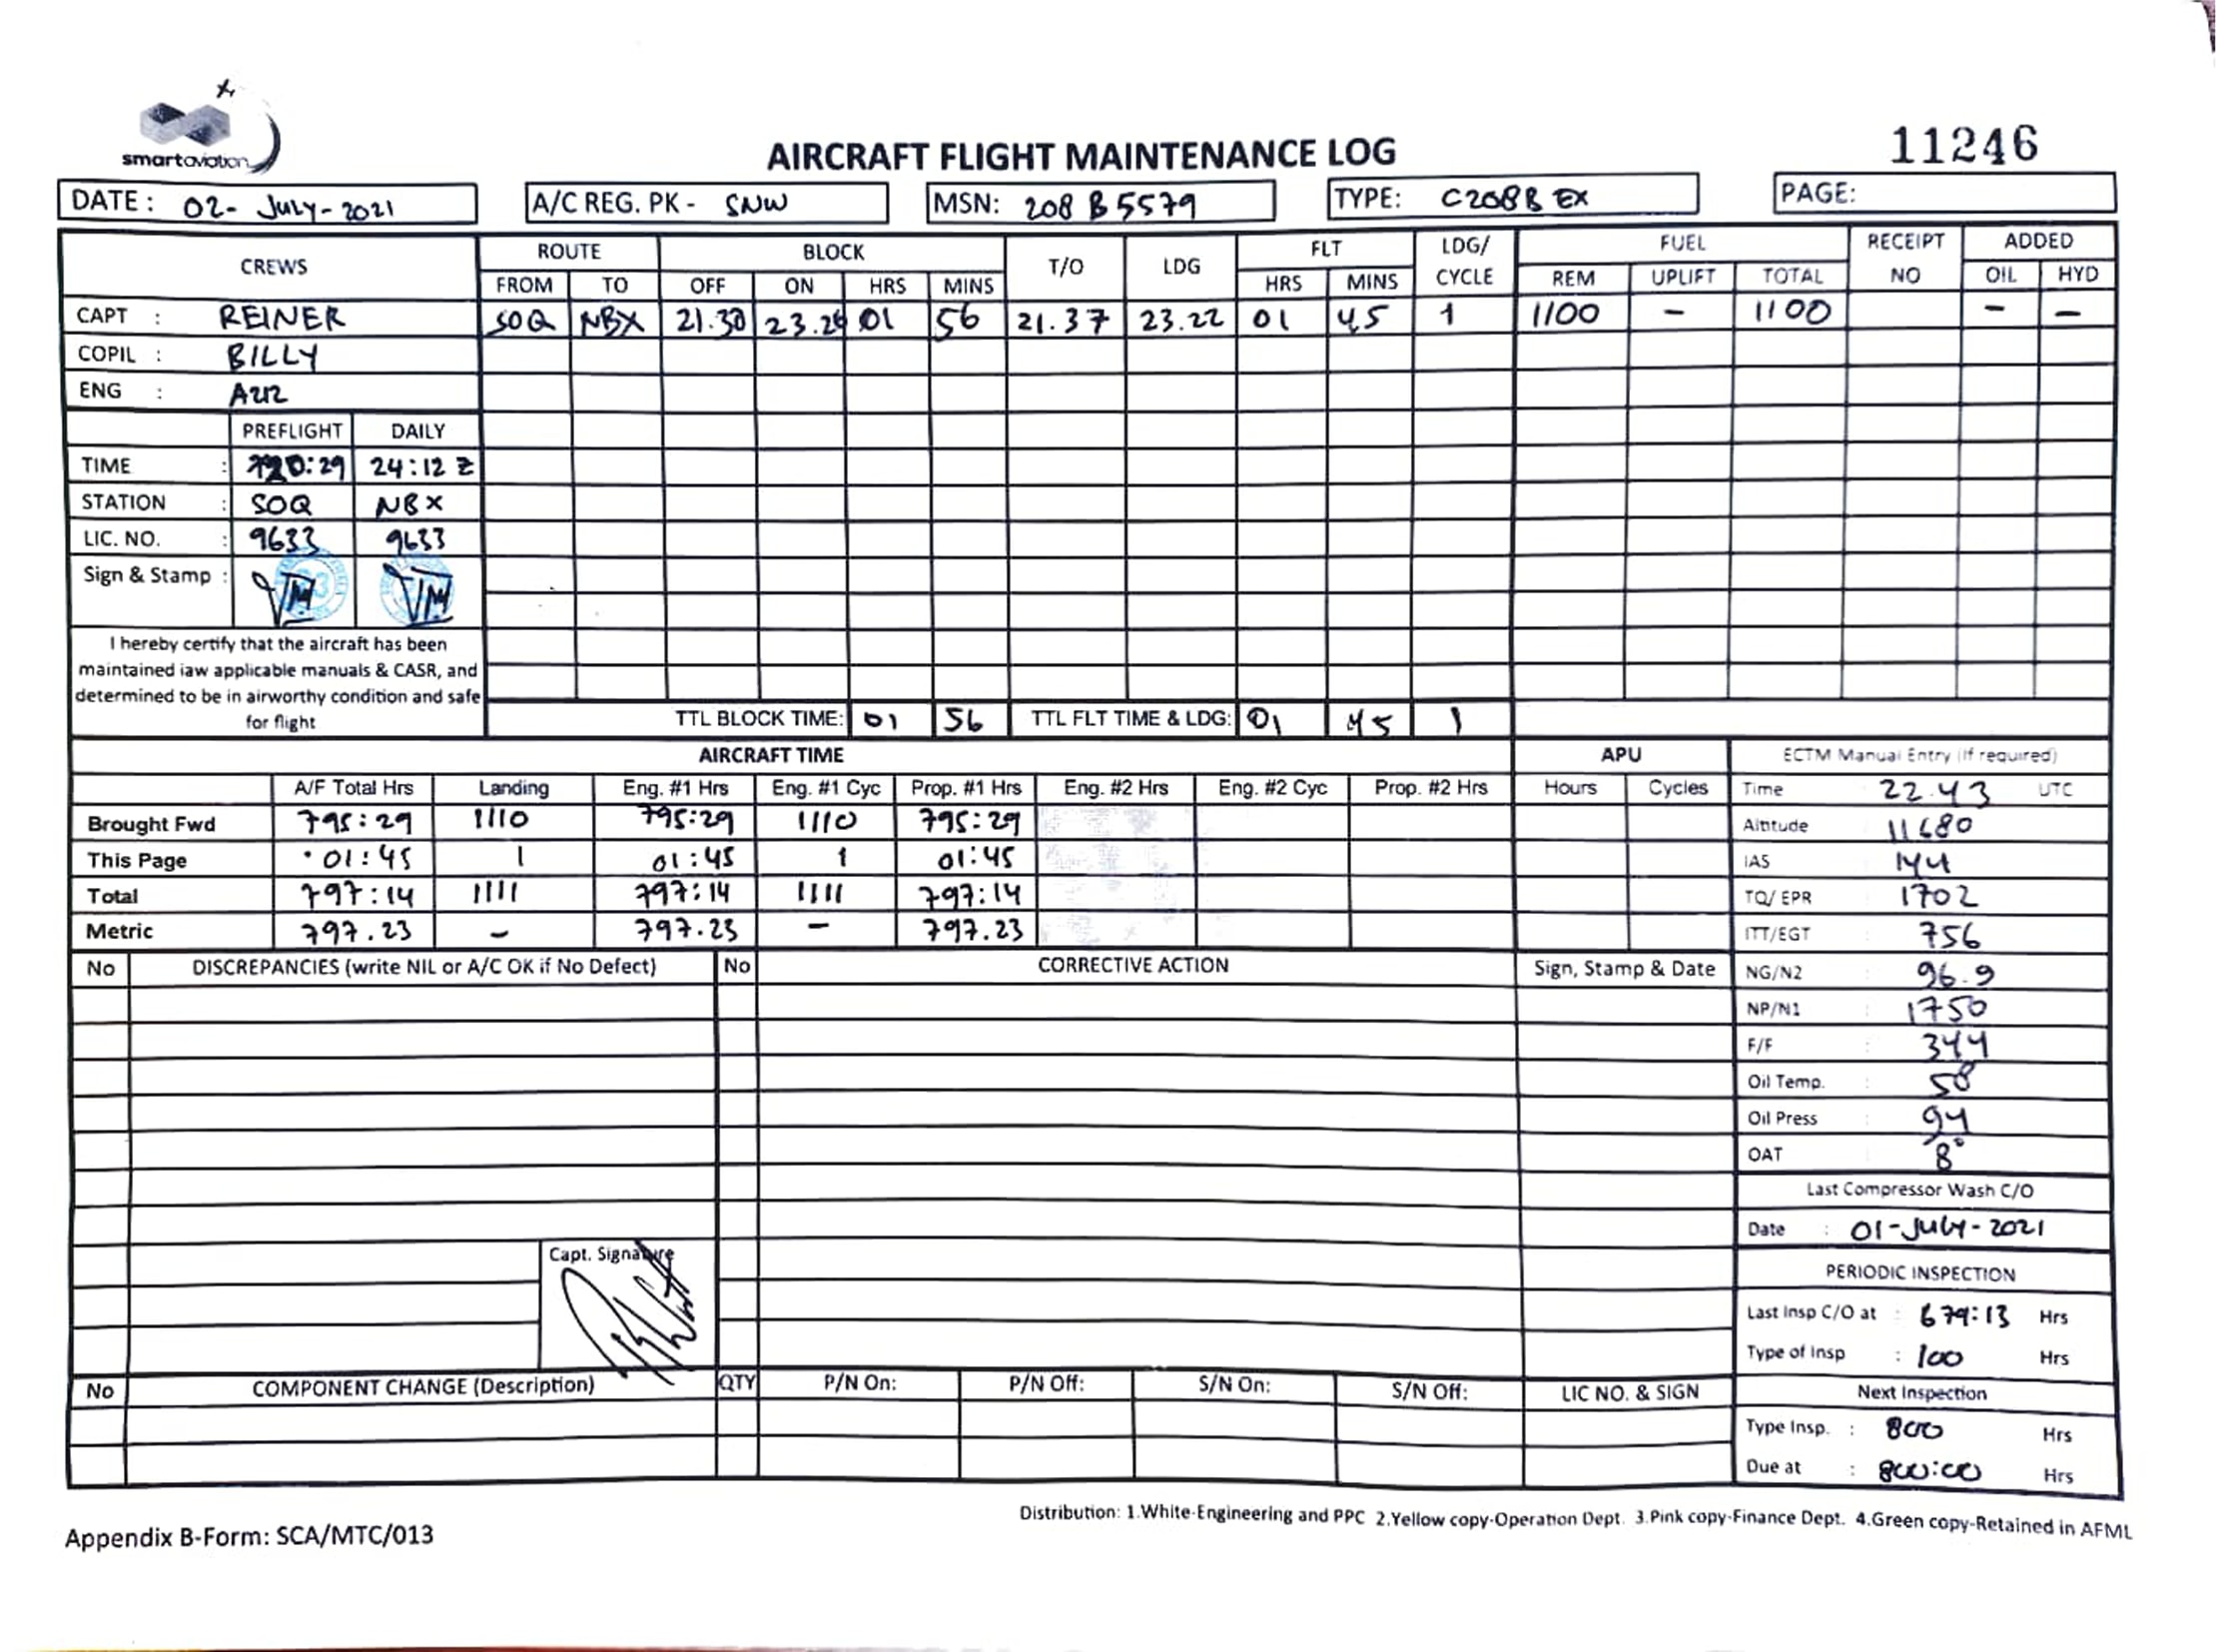 smartaviation
AIRCRAFT FLIGHT MAINTENANCE LOG
11246
DATE : 02- JULY-2021
A/C REG. PK - SNW
MSN: 208 B 5579
TYPE: C208B EX
PAGE:
CREWS ROUTE BLOCK T/O LDG FLT LDG/ CYCLE FUEL RECEIPT NO ADDED
FROM TO OFF ON HRS MINS HRS MINS REM UPLIFT TOTAL OIL HYD
CAPT : REINER SOQ NBX 21.30 23.26 01 56 21.37 23.22 01 45 1 1100 - 1100 - -
COPIL : BILLY
ENG :
PREFLIGHT DAILY
TIME : 20:29 24:12 Z
STATION : SOQ NBX
LIC. NO. : 9633 9633
Sign & Stamp :
I hereby certify that the aircraft has been
maintained iaw applicable manuals & CASR, and
determined to be in airworthy condition and safe
for flight
TTL BLOCK TIME: 01 56 TTL FLT TIME & LDG: 01 45 1
AIRCRAFT TIME APU ECTM Manual Entry (If required)
A/F Total Hrs Landing Eng. #1 Hrs Eng. #1 Cyc Prop. #1 Hrs Eng. #2 Hrs Eng. #2 Cyc Prop. #2 Hrs Hours Cycles
Brought Fwd 795:29 1110 795:29 1110 795:29
This Page 01:45 1 01:45 1 01:45
Total 797:14 1111 797:14 1111 797:14
Metric 797.23 - 797.23 - 797.23
Time 22.43 UTC
Altitude 11680
IAS 144
TQ/ EPR 1702
ITT/EGT : 756
NG/N2 : 96.9
NP/N1 : 1750
F/F : 344
Oil Temp. : 58
Oil Press : 94
OAT 8°
Last Compressor Wash C/O
Date : 01-JULY-2021
PERIODIC INSPECTION
Last Insp C/O at : 679:13 Hrs
Type of Insp : 100 Hrs
Next Inspection
Type Insp. : 800 Hrs
Due at : 800:00 Hrs
No DISCREPANCIES (write NIL or A/C OK if No Defect) No CORRECTIVE ACTION Sign, Stamp & Date
Capt. Signature
No COMPONENT CHANGE (Description) QTY P/N On: P/N Off: S/N On: S/N Off: LIC NO. & SIGN
Distribution: 1.White-Engineering and PPC 2.Yellow copy-Operation Dept. 3.Pink copy-Finance Dept. 4.Green copy-Retained in AFML
Appendix B-Form: SCA/MTC/013